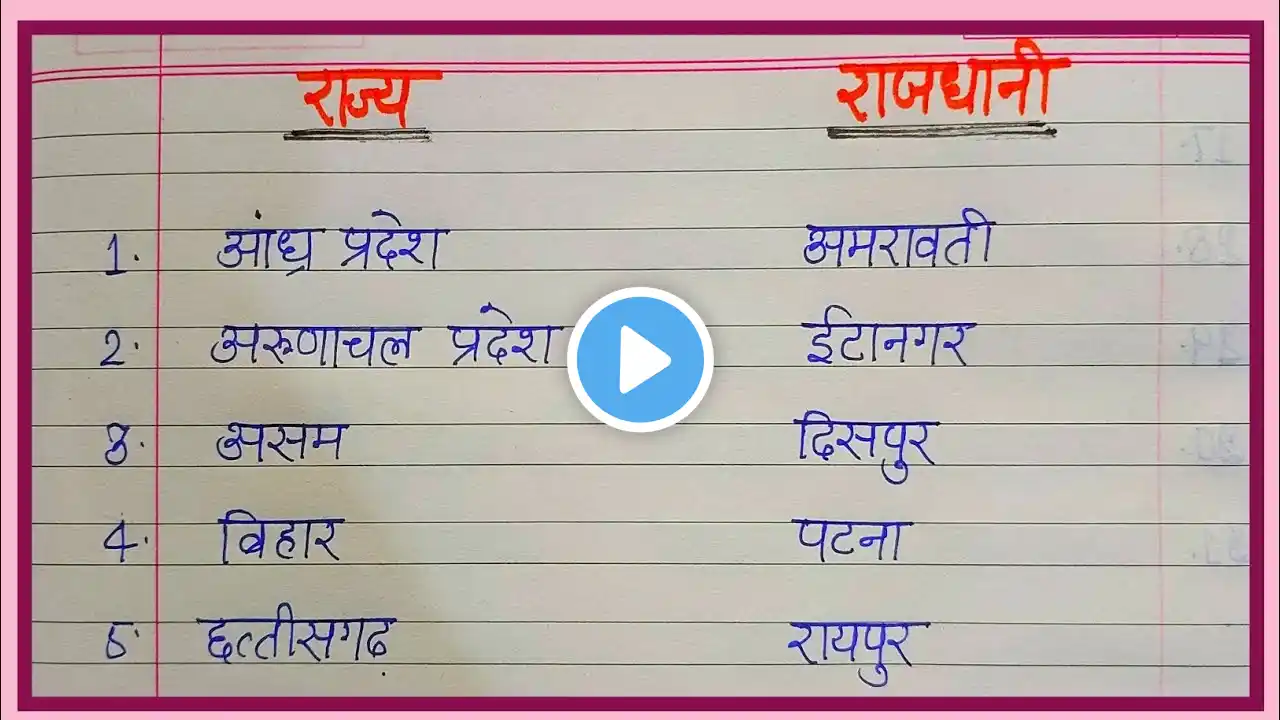 राज्य राजधानी
1. आंध्र प्रदेश अमरावती
2. अरुणाचल प्रदेश ईटानगर
3. असम दिसपुर
4. बिहार पटना
5. छत्तीसगढ़ रायपुर